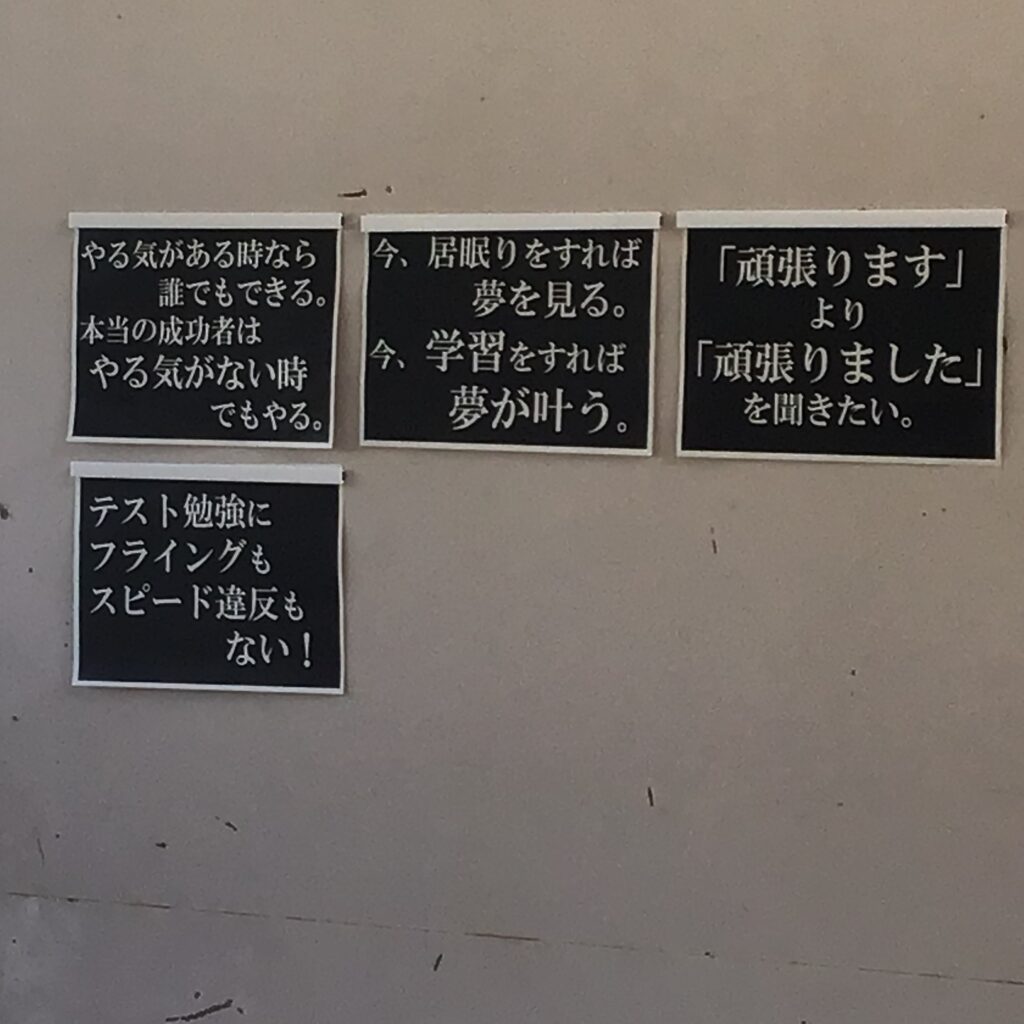 やる気がある時なら
誰でもできる。
本当の成功者は
やる気がない時
でもやる。
今、居眠りをすれば
夢を見る。
今、学習をすれば
夢が叶う。
「頑張ります」
より
「頑張りました」
を聞きたい。
テスト勉強に
フライングも
スピード違反も
ない！